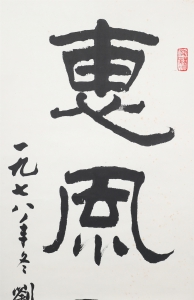 惠風
一九七八年冬劉